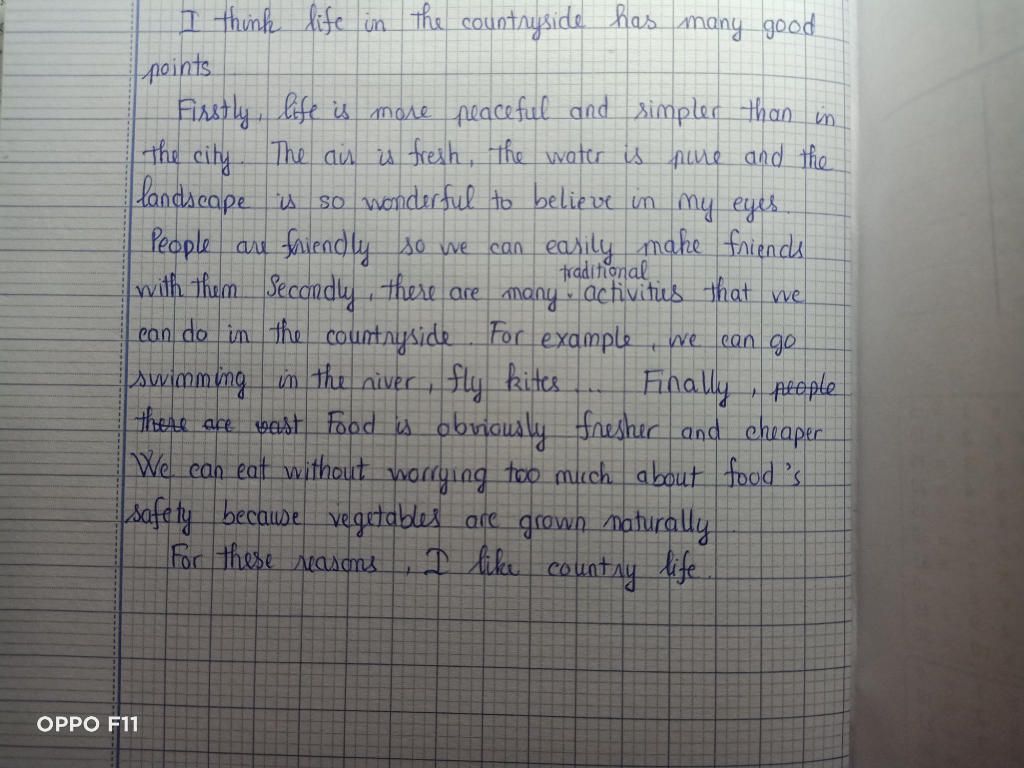 I think life in the countryside has many good
points
Firstly, life is more peaceful and simpler than in
the city. The air is fresh, the water is pure and the
landscape is so wonderful to believe in my eyes.
People are friendly so we can easily make friends
traditional
with them Secondly, there are many activities that we
can do in the countryside. For example, we can go
swimming in the river, fly kites... Finally, people
there are past Food is obviously fresher and cheaper
We can eat without worrying too much about food's
safety because vegetables are grown naturally.
For these reasons, I like country life.
OPPO F11